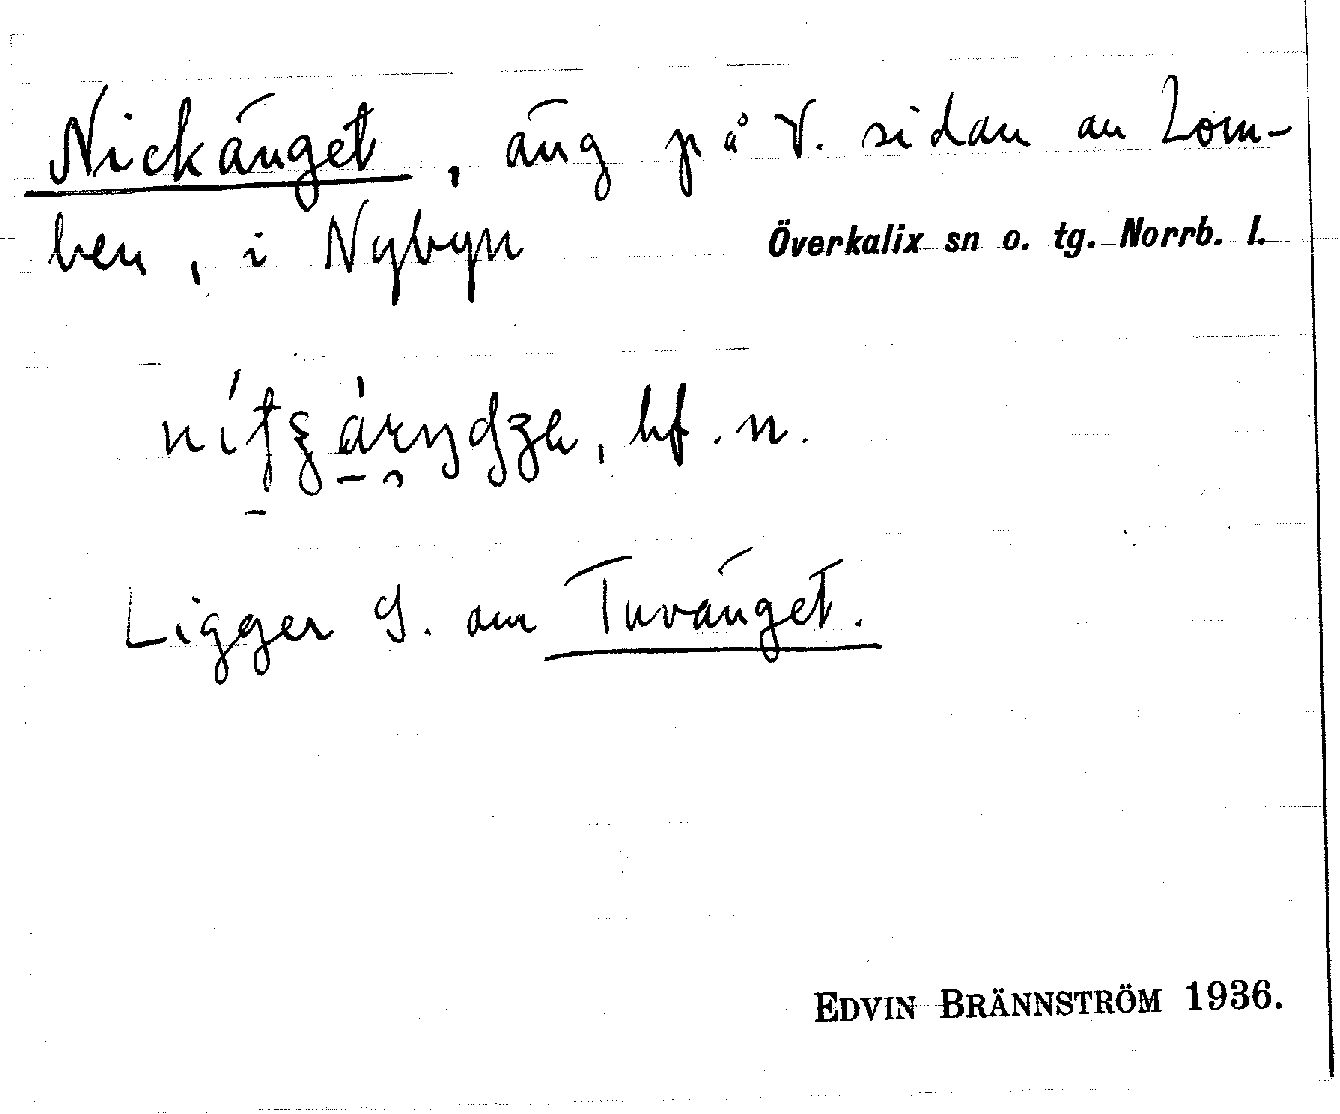 Nickänget, äng på V. sidan av Lom-
ben, i Nybyn
Överkalix sn o. tg. Norrb. l.
bf. n.
Ligger S. om Tuvänget.
EDVIN BRÄNNSTRÖM 1936.